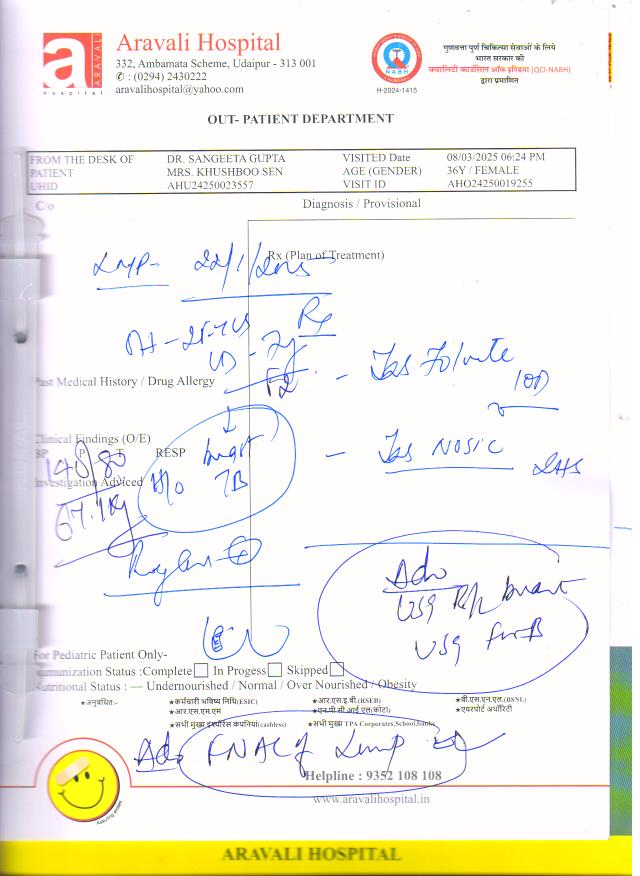 a
ARAVALI
Hospital
Aravali Hospital
332, Ambamata Scheme, Udaipur - 313 001
✆ : (0294) 2430222
aravalihospital@yahoo.com
NABH
H-2024-1415
गुणवत्ता पूर्ण चिकित्सा सेवाओं के लिये
भारत सरकार की
क्वालिटी काउंसिल ऑफ इण्डिया (QCI-NABH)
द्वारा प्रमाणित
OUT- PATIENT DEPARTMENT
FROM THE DESK OF DR. SANGEETA GUPTA VISITED Date 08/03/2025 06:24 PM
PATIENT MRS. KHUSHBOO SEN AGE (GENDER) 36Y / FEMALE
UHID AHU24250023557 VISIT ID AHO24250019255
C/o Diagnosis / Provisional
Rx (Plan of Treatment)
LMP- 22/1/2025
Rx
Past Medical History / Drug Allergy
- Tab Folvite
1OD
Clinical Findings (O/E)
BP P T RESP
140/80
breast
H/o TB
- Tab NOSIC
Investigation Adviced
67.1Kg
Adv
USG breast
USG
For Pediatric Patient Only-
Immunization Status :Complete In Progess Skipped
Nutritional Status : — Undernourished / Normal / Over Nourished / Obesity
★अनुबंधित:- ★कर्मचारी भविष्य निधि(ESIC) ★आर.एस.इ.बी.(RSEB) ★बी.एस.एन.एल.(BSNL)
★आर.एस.एम.एम ★एन.पी.सी आई एल(कोटा) ★एयरपोर्ट अथॉरिटी
★सभी मुख्य इंश्योरेंस कंपनिया(cashless) ★सभी मुख्य TPA Corporates,School,banks
Adv FNAC of Lump
Helpline : 9352 108 108
www.aravalihospital.in
Assuring smiles
ARAVALI HOSPITAL